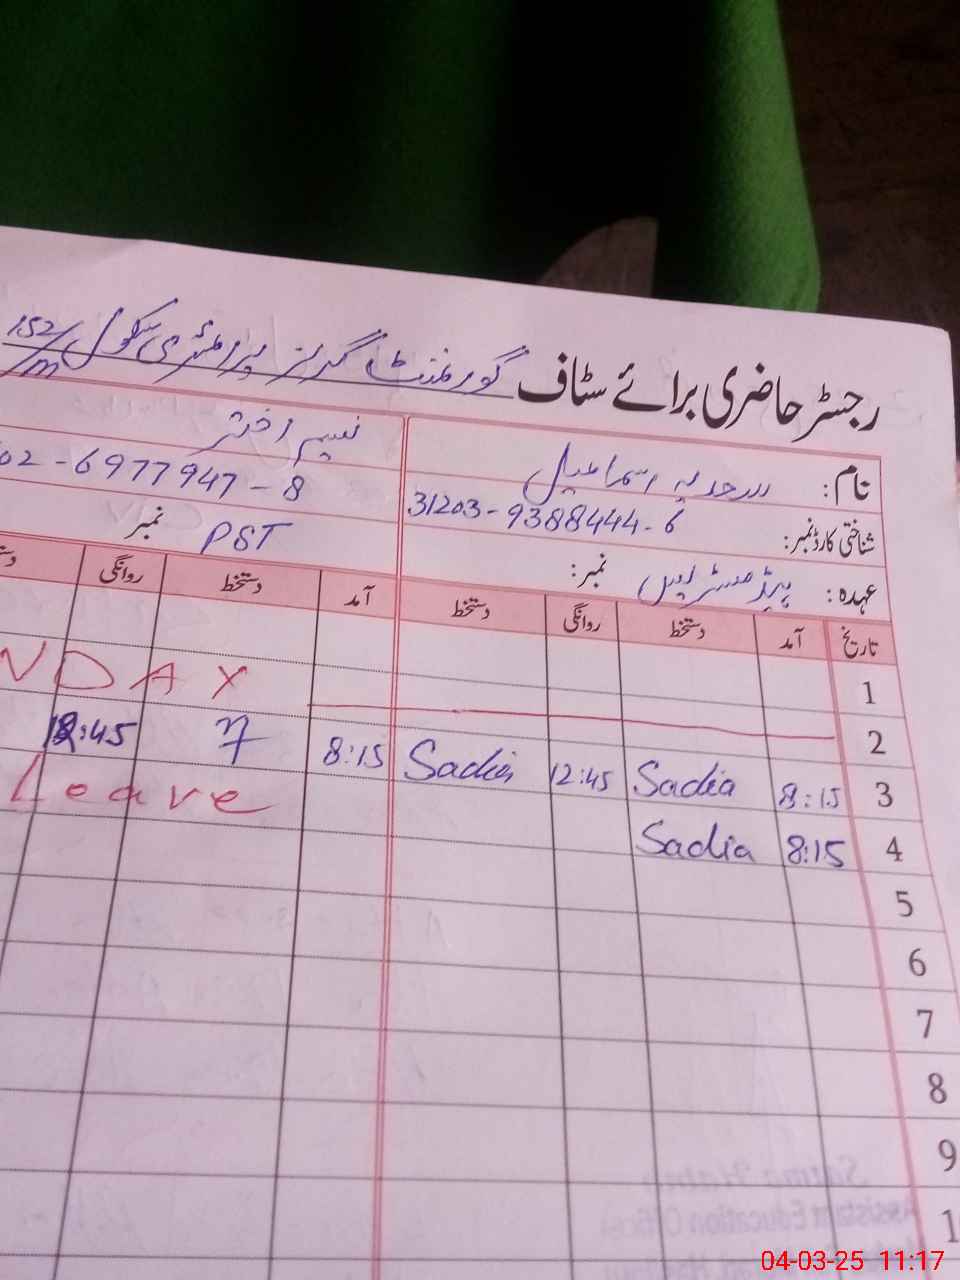 رجسٹر حاضری برائے سٹاف گورنمنٹ گرلز پرائمری سکول 152/m
نام: سعدیہ اسماعیل
شناختی کارڈ نمبر: 31203-9388444-6
عہدہ: ہیڈ مسٹریس نمبر:
نسیم اختر
02-6977947-8
PST نمبر
تاریخ آمد دستخط روانگی دستخط آمد دستخط روانگی
1
2 NDAY
3 8:15 Sadia 12:45 Sadia 8:15 12:45
4 8:15 Sadia Leave
5
6
7
8
9
04-03-25 11:17